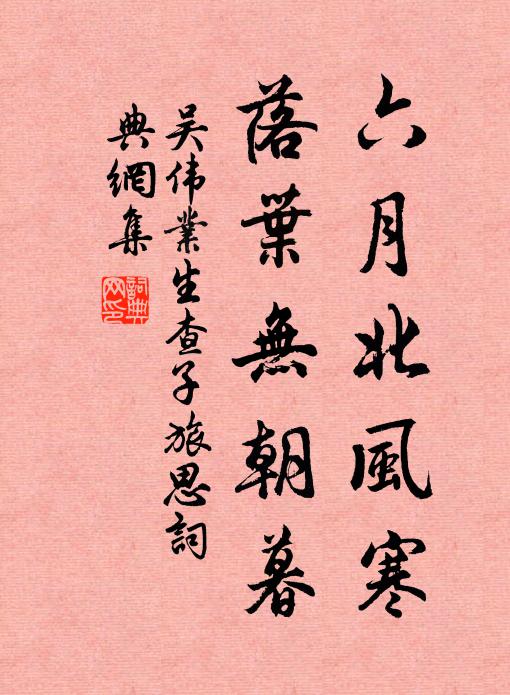 六月北風寒
落葉無朝暮
吴伟業生查子旅思詞
典網集
詞典
网印